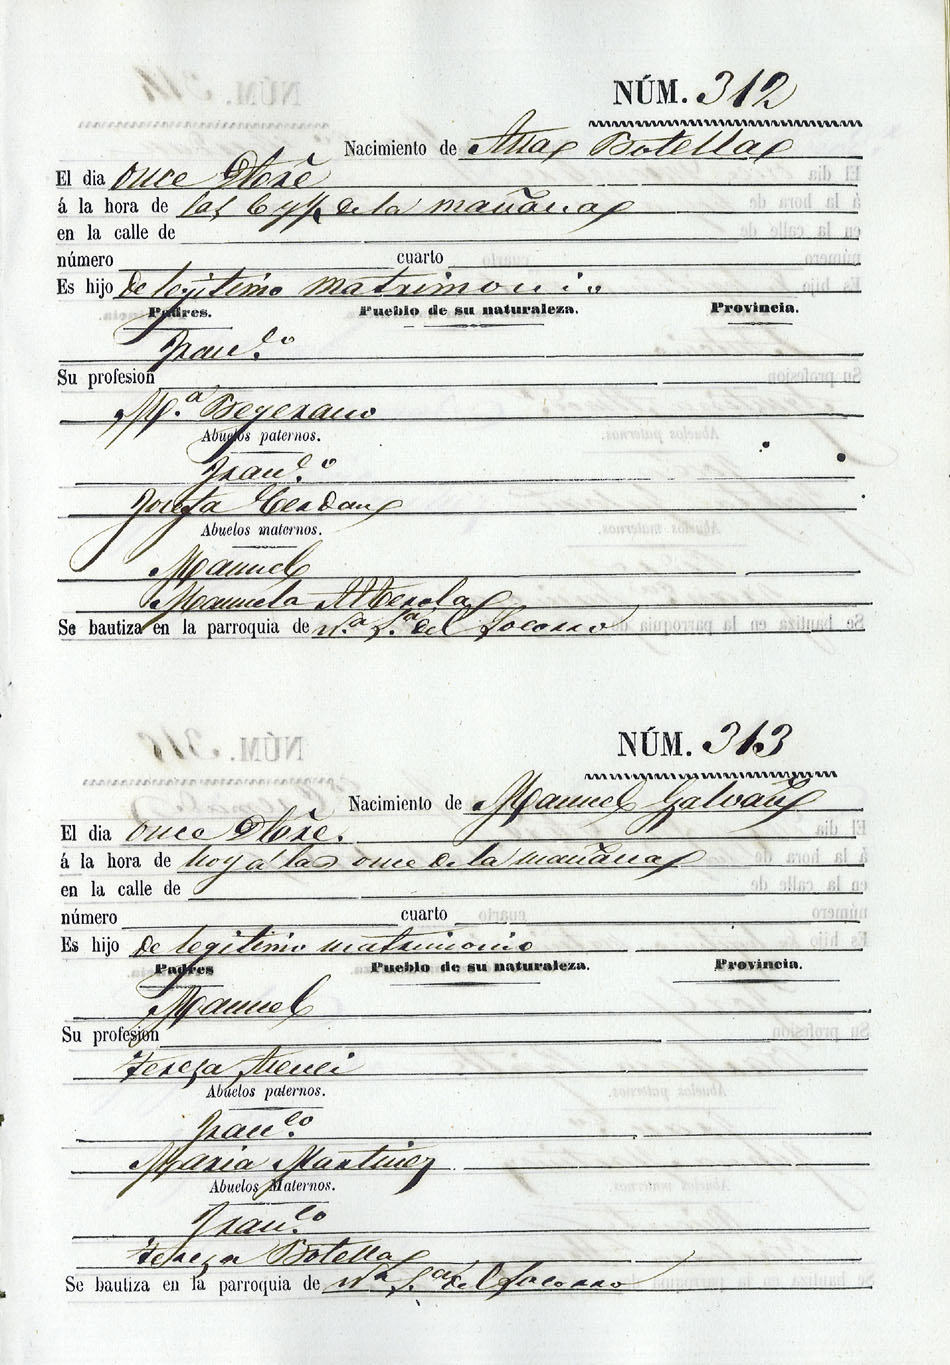 NÚM. 312
Nacimiento de Ana Botella
El dia once Otbre
á la hora de las 6 y ½ de la mañana
en la calle de
número cuarto
Es hijo de legitimo matrimonio
Padres. Pueblo de su naturaleza. Provincia.
Franco.
Su profesion
Ma. Begerano
Abuelos paternos.
Franco.
Josefa Cerdan
Abuelos maternos.
Manuel
Manuela Alberola
Se bautiza en la parroquia de Na. Sa. del Socorro
NÚM. 313
Nacimiento de Manuel Galvañ
El dia once Otbre.
á la hora de hoy a las once de la mañana
en la calle de
número cuarto
Es hijo de legitimo matrimonio
Padres Pueblo de su naturaleza. Provincia.
Manuel
Su profesion
Tereza
Abuelos paternos.
Franco.
Maria Martinez
Abuelos Maternos.
Franco.
Tereza Botella
Se bautiza en la parroquia de Na. Sa. del Socorro